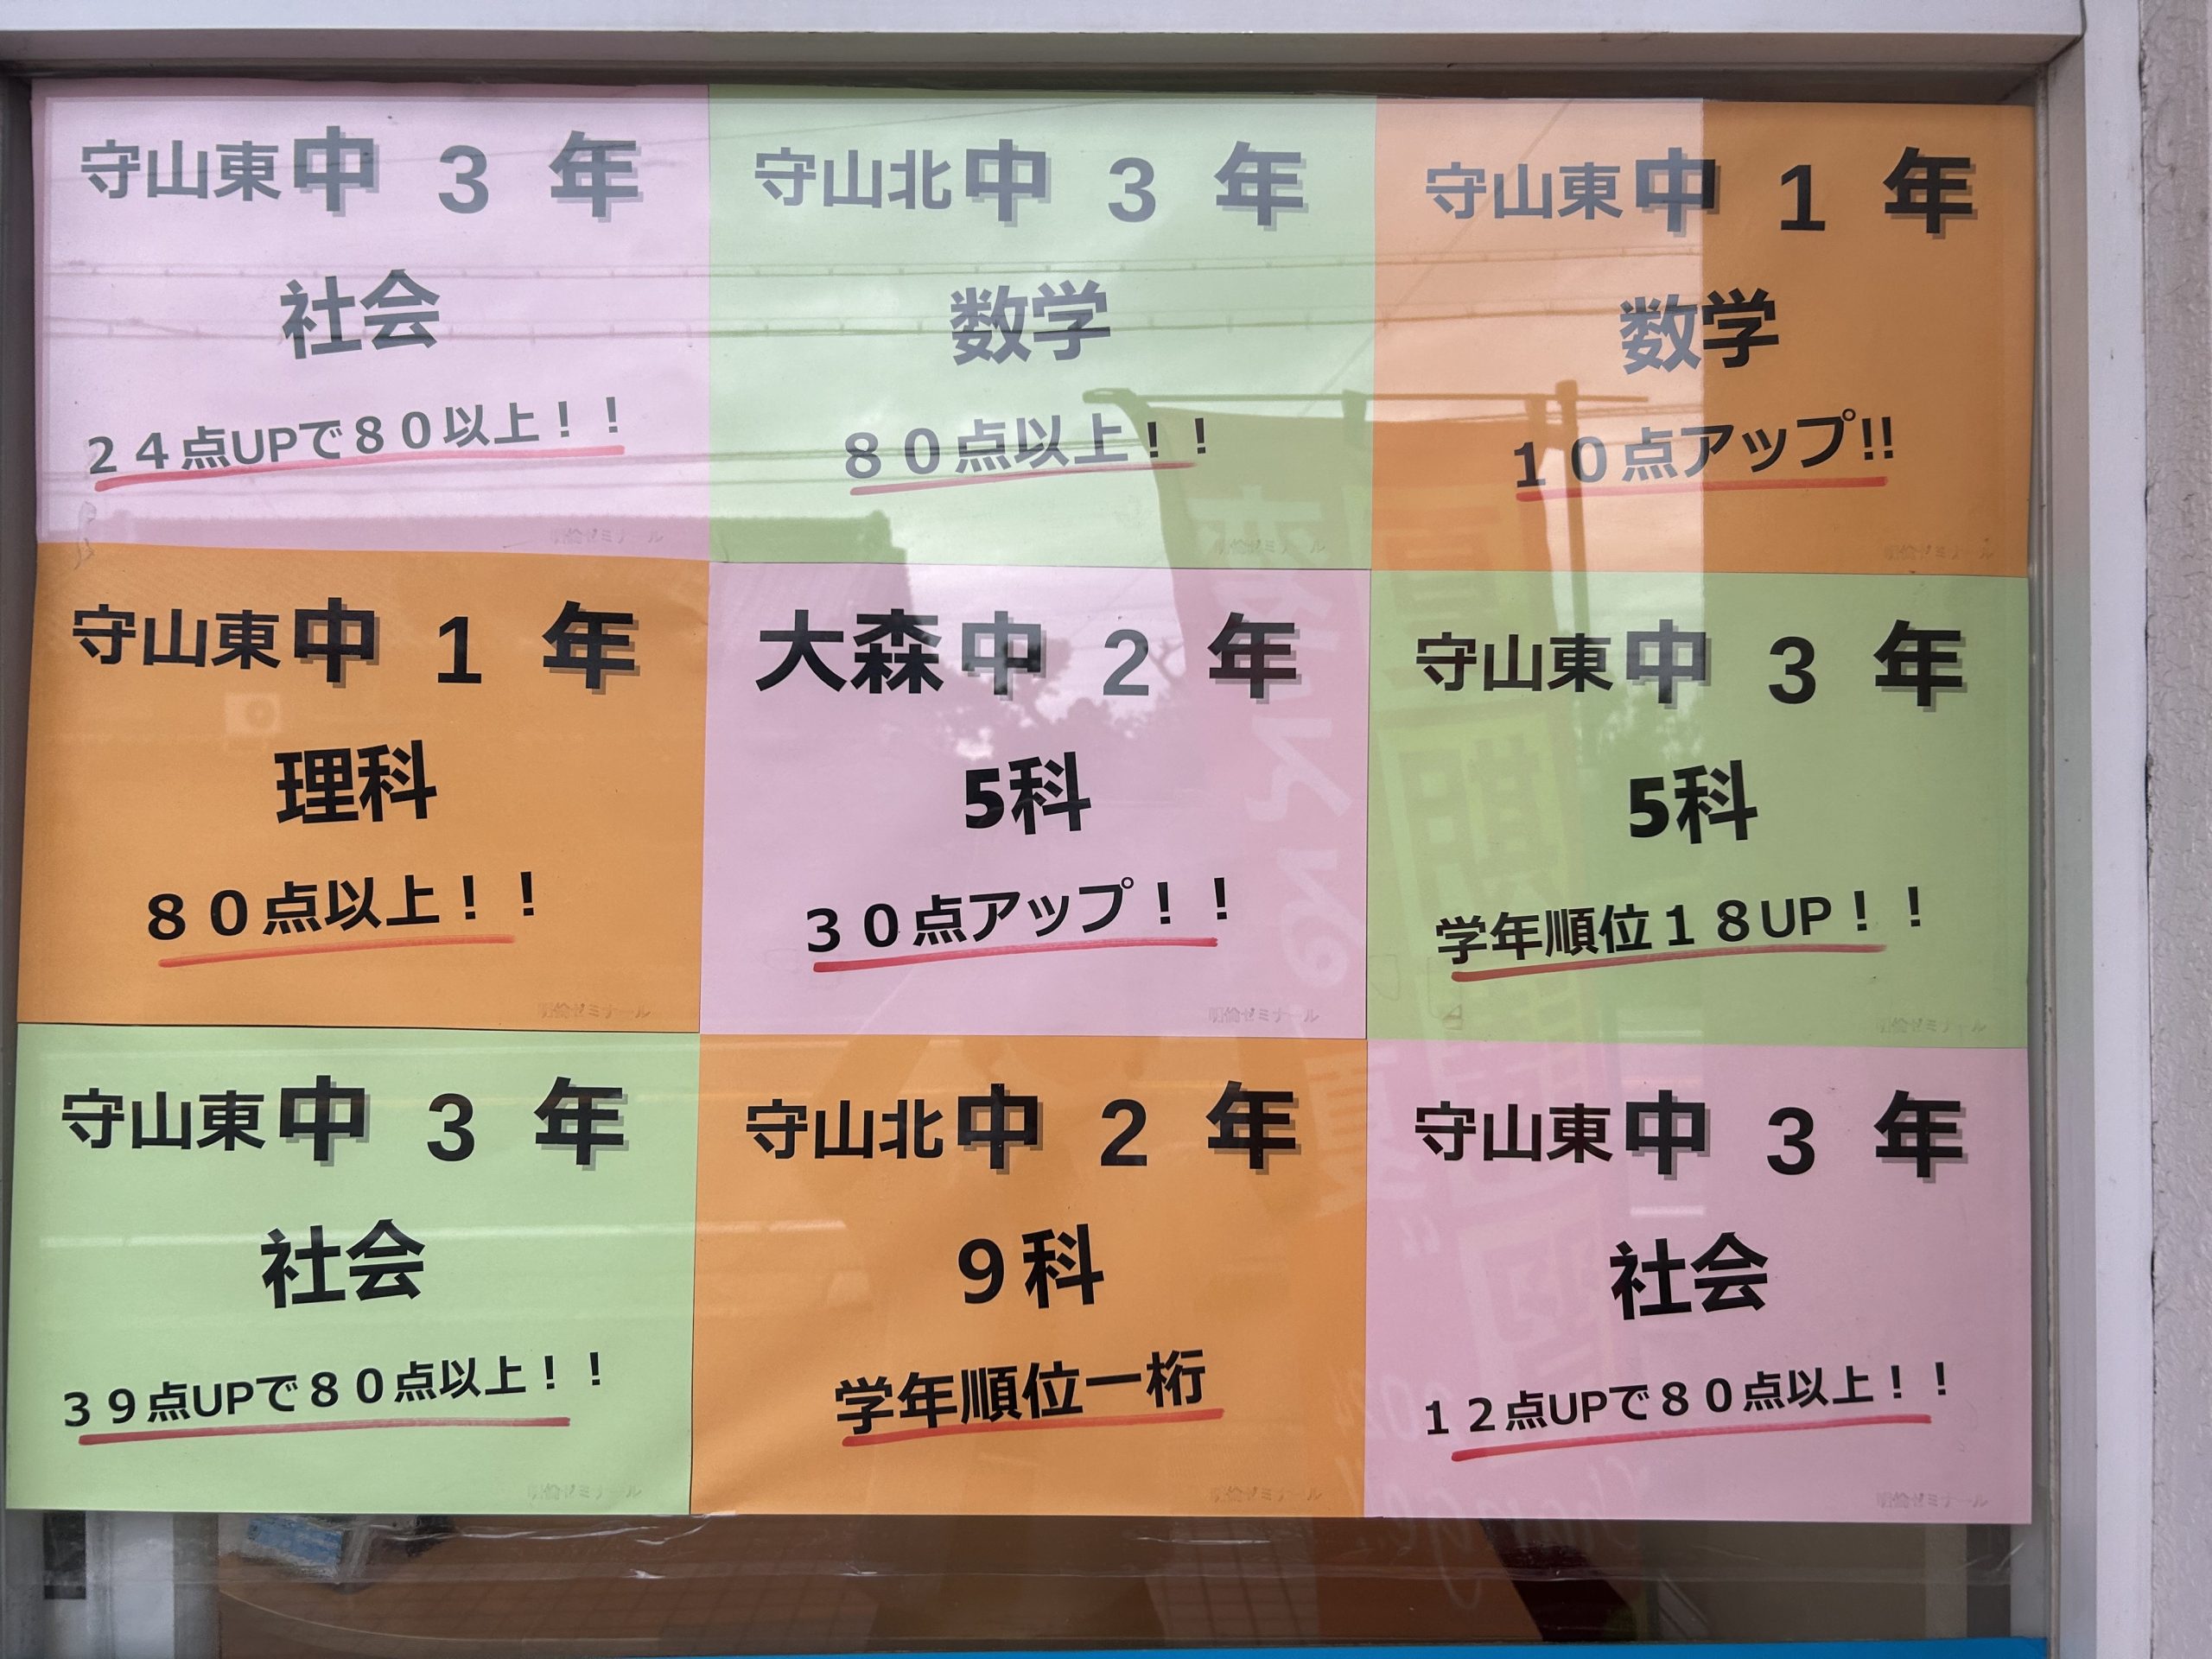 守山東中 3 年
社会
24点UPで80以上！！
明倫ゼミナール
守山北中 3 年
数学
80点以上！！
明倫ゼミナール
守山東中 1 年
数学
10点アップ!!
明倫ゼミナール
守山東中 1 年
理科
80点以上！！
明倫ゼミナール
大森中 2 年
5科
30点アップ！！
明倫ゼミナール
守山東中 3 年
5科
学年順位18UP！！
明倫ゼミナール
守山東中 3 年
社会
39点UPで80点以上！！
明倫ゼミナール
守山北中 2 年
9科
学年順位一桁
明倫ゼミナール
守山東中 3 年
社会
12点UPで80点以上！！
明倫ゼミナール